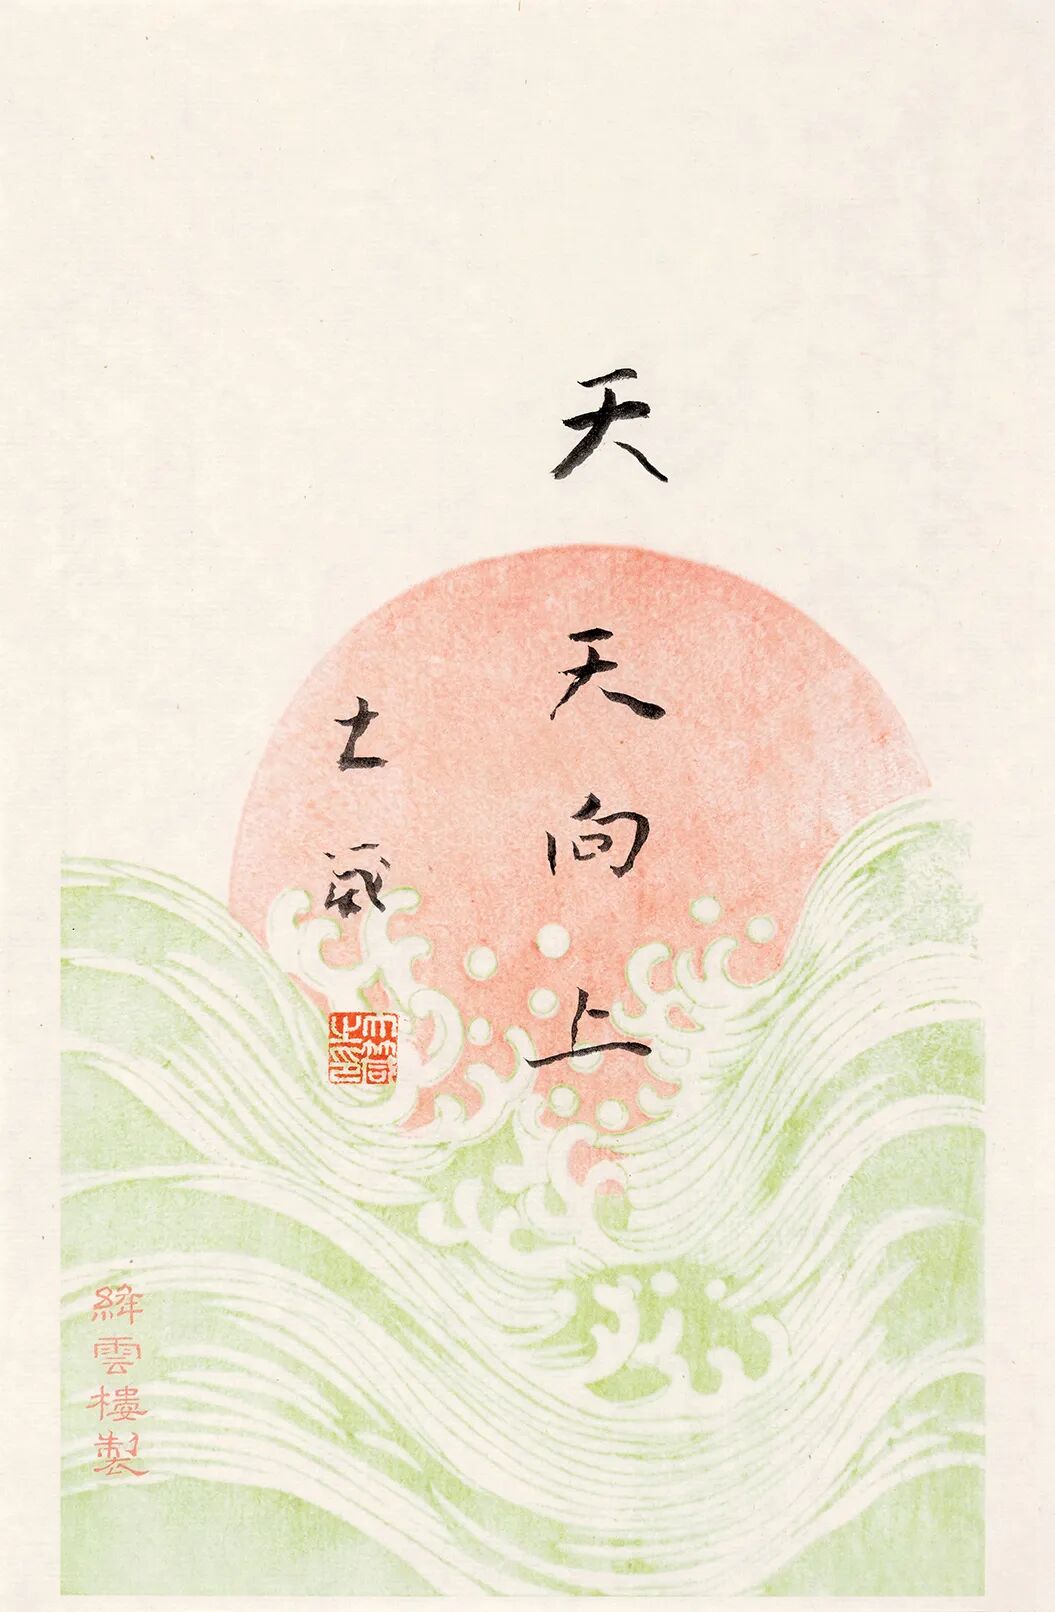 天天向上
絳雲樓製